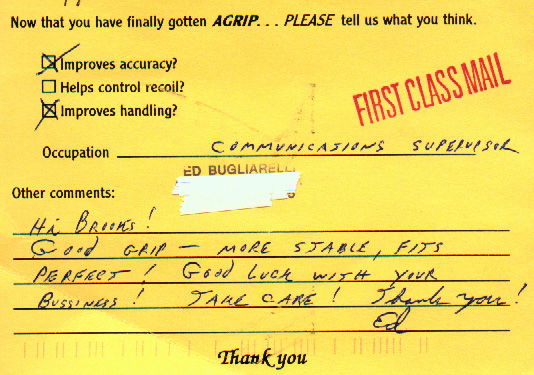 Now that you have finally gotten AGRIP... PLEASE tell us what you think.
Improves accuracy?
Helps control recoil?
Improves handling?
FIRST CLASS MAIL
Occupation COMMUNICATIONS SUPERVISOR
ED BUGLIARELLI
Other comments:
Hi BROOKS!
Good GRIP — MORE STABLE, FITS
PERFECT! Good Luck WITH YOUR
BUSSINESS! TAKE CARE! Thank you!
Ed
Thank you